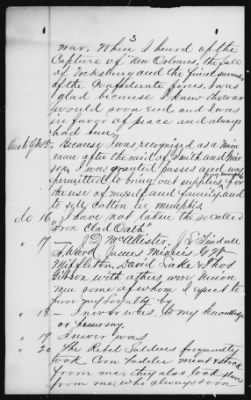 3
war. When I heard of the
Capture of New Orleans, the fall
of Vicksburg and the final surrender
of the Confederate forces, I was
glad because I knew the war
would soon end, and I was
in favor of peace and always
had been.
Because I was recognized as a Union
man after the raid of Smith and
I was granted passes and was
permitted to bring out supplies for
the use of myself and family and
to sell Cotton in Memphis.
No 16 I have not taken the so called
"Iron Clad Oath"
" 17 — J D McAllister, J L Tindall
James
Middleton David Lake & Thos
with others were Union
men some of whom I expect to
prove my loyalty by
" 18 — I never was, to my knowledge
or
" 19 — I never was
" 20 The Rebel Soldiers frequently
took Corn Fodder meat &
from me, they also took
from me, who always